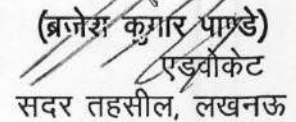 (ब्रजेश कुमार पाण्डे)
एडवोकेट
सदर तहसील, लखनऊ